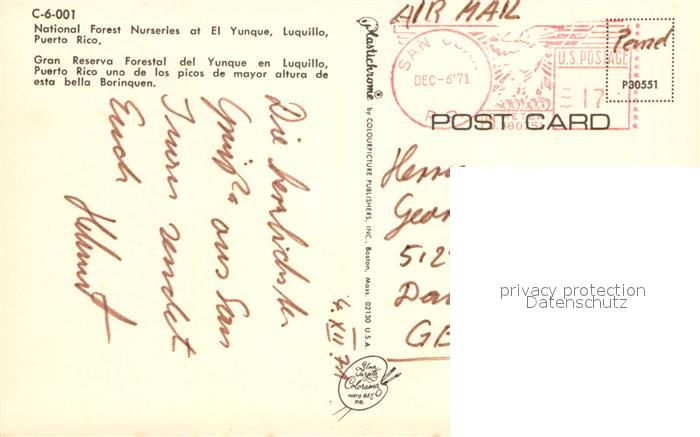 C-6-001
National Forest Nurseries at El Yunque, Luquillo,
Puerto Rico.
Gran Reserva Forestal del Yunque en Luquillo,
Puerto Rico uno de los picos de mayor altura de
esta bella Borinquen.
Die herrlichsten
Grüße aus San
Juan sendet
Euch
Helmut
4. XII. 71
Plastichrome ® by COLOURPICTURE PUBLISHERS, INC., Boston, Mass. 02130 U.S.A.
AIR MAIL
SAN JUAN
DEC-6'71
P.R.
U.S. POSTAGE
17
P30551
POST CARD
Herrn
Geor
512
GE
privacy protection
Datenschutz
Colorama
HATO REY,
P.R.